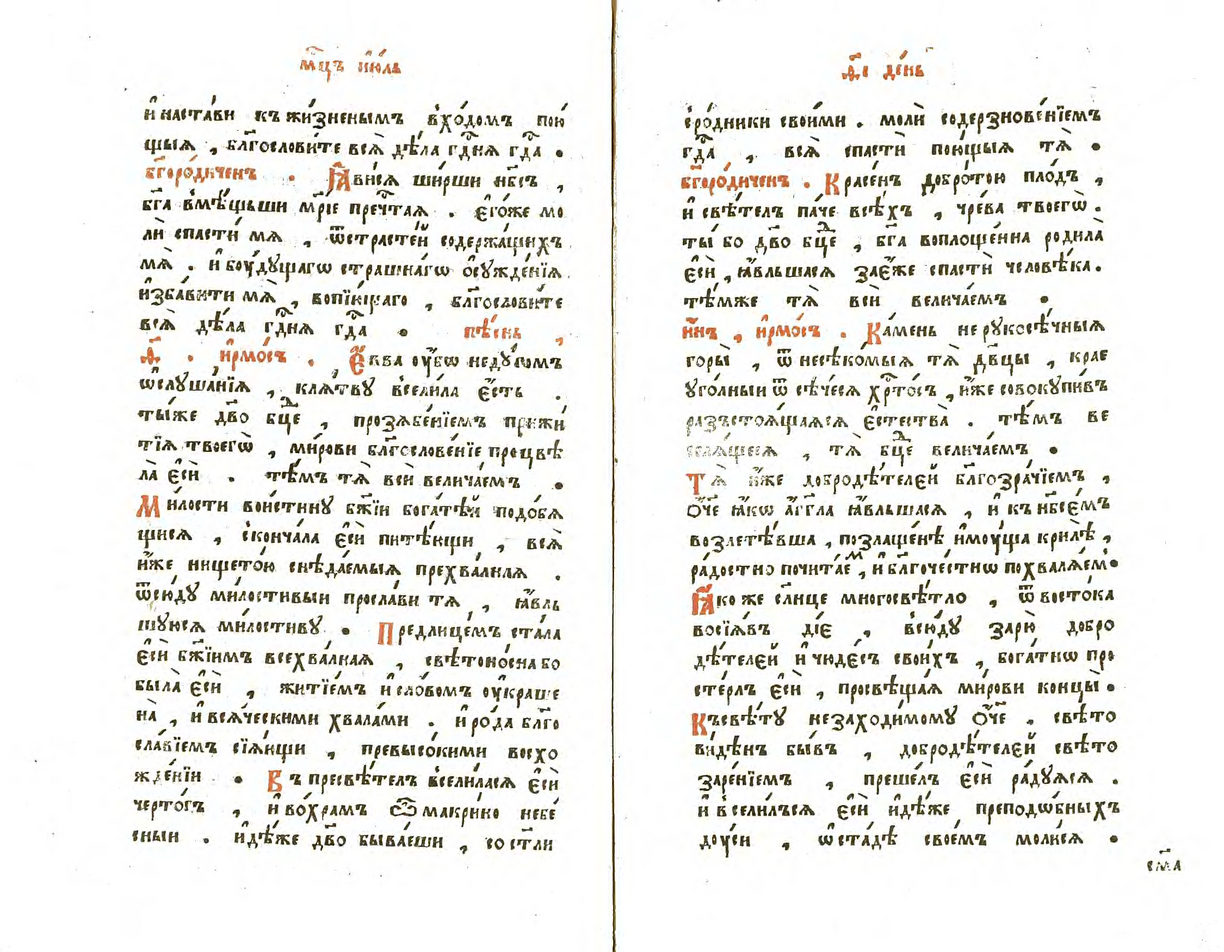 мц҃ъ ию́ль
и҆ наста́ви къ жи́зненымъ вхо́домъ пою
щыѧ , бл҃гослови́те всѧ̀ дѣ́ла гдⷭ҇нѧ гдⷭ҇а .
бг҃оро́диченъ . Ꙗ҆ви́сѧ ши́рши нб҃съ ,
бг҃а вмѣ́щьши мр҃і́е пречⷭ҇таѧ . є҆го́же мо
лѝ спасти́ мѧ , ѿ страсте́й содержа́щихъ
мѧ . и҆ бꙋ́дꙋщагѡ стра́шнагѡ ѡ҆сꙋжде́нїѧ
и҆зба́вити мѧ̀ , вопїю́щаго , бл҃гослови́те
всѧ̀ дѣ́ла гдⷭ҇нѧ гдⷭ҇а . пѣ́снь ,
ѳ҃ . і҆рмо́съ . Є҆́ква ᲂу҆́бѡ недꙋ́гомъ
ѡ҆слꙋша́нїѧ , клѧ́твꙋ всели́ла є҆́сть .
ты́же дв҃о бц҃е , прозѧбе́нїемъ прижи
тїѧ̀ твоегѡ̀ , ми́рови бл҃гослове́нїе процвѣ
ла̀ є҆сѝ . тѣ́мъ тѧ̀ всѝ велича́емъ .
Ми́лости вои́стинꙋ бж҃їи бога́тѣй подо́бѧ
щисѧ , сконча́ла є҆сѝ питѣ́ющи , всѧ̀
и҆́же нището́ю снѣда́емыѧ прехва́лнаѧ .
ѿсю́дꙋ ми́лостивыи просла́ви тѧ , ꙗ҆́вль
шꙋюсѧ ми́лостивꙋ . Предлице́мъ ста́ла
є҆сѝ бж҃їимъ всехва́лнаѧ , свѣтоно́сна бо
была̀ є҆сѝ , житїе́мъ и҆ сло́вомъ ᲂу҆кра́ше
на̀ , и҆ всѧ́ческими хвала́ми . и҆ ро́да бл҃го
сла́вїемъ сїѧ́ющи , превысо́кими восхо
жде́нїи . Въ пресвѣ́телъ всели́ласѧ є҆сѝ
черто́гъ , и҆ во́храмъ ѽ макри́но небе́
сныи . и҆дѣ́же дв҃о быва́еши , со ст҃ли
ѳ҃і де́нь
сро́дники свои́ми . молѝ содерзнове́нїемъ
гдⷭ҇а , всѧ̀ спастѝ пою́щыѧ тѧ̀ .
бг҃оро́диченъ . Красе́нъ добро́тою пло́дъ ,
и҆ свѣ́телъ па́че всѣ́хъ , чре́ва твоегѡ̀ .
ты̀ бо дв҃о бц҃е , бг҃а воплоще́нна родила̀
є҆сѝ , ꙗ҆́вльшасѧ зає҆́же спастѝ человѣ́ка .
тѣ́мже тѧ̀ всѝ велича́емъ .
и҆́нъ , і҆рмо́съ . Ка́мень нерꙋкосѣ́чныѧ
горы̀ , ѿ несѣко́мыѧ тѧ̀ дв҃цы , крае
ᲂуго́лныи ѿсѣ́чесѧ хрⷭ҇то́съ , и҆́же совокꙋпи́въ
разъстоѧ́щаѧсѧ є҆стества̀ . тѣ́мъ ве
селѧ́щесѧ , тѧ̀ бц҃е велича́емъ .
Тѧ̀ и҆́же добродѣ́телей бл҃гозра́чїемъ ,
ѻ҆́ч҃е ꙗ҆́кѡ а҆́гг҃ла ꙗ҆́вльшасѧ , и҆ къ нб҃се́мъ
возлетѣ́вша , позлаще́нѣ и҆мꙋ́ща крилѣ̀ ,
ра́достно почита́еⷨ , и҆ бл҃гоче́стнѡ похвалѧ́емъ .
Ꙗ҆́коже сл҃нце многосвѣ́тло , ѿ восто́ка
восїѧ́въ дїе , всю́дꙋ зарю̀ добро
дѣ́телей и҆ чюде́съ свои́хъ , бога́тнѡ про
сте́рлъ є҆сѝ , просвѣща́ѧ ми́рови концы̀ .
Къ свѣ́тꙋ незаходи́момꙋ ѻ҆́ч҃е . свѣ́то
ви́дѣнъ бы́въ , добродѣ́телей свѣ́то
заре́нїемъ , преше́лъ є҆сѝ ра́дꙋѧсѧ .
и҆ всели́лъсѧ є҆сѝ и҆дѣ́же преподѡ́бныхъ
дꙋ́си , ѡ҆ ста́дѣ свое́мъ моли́сѧ .
см҃а